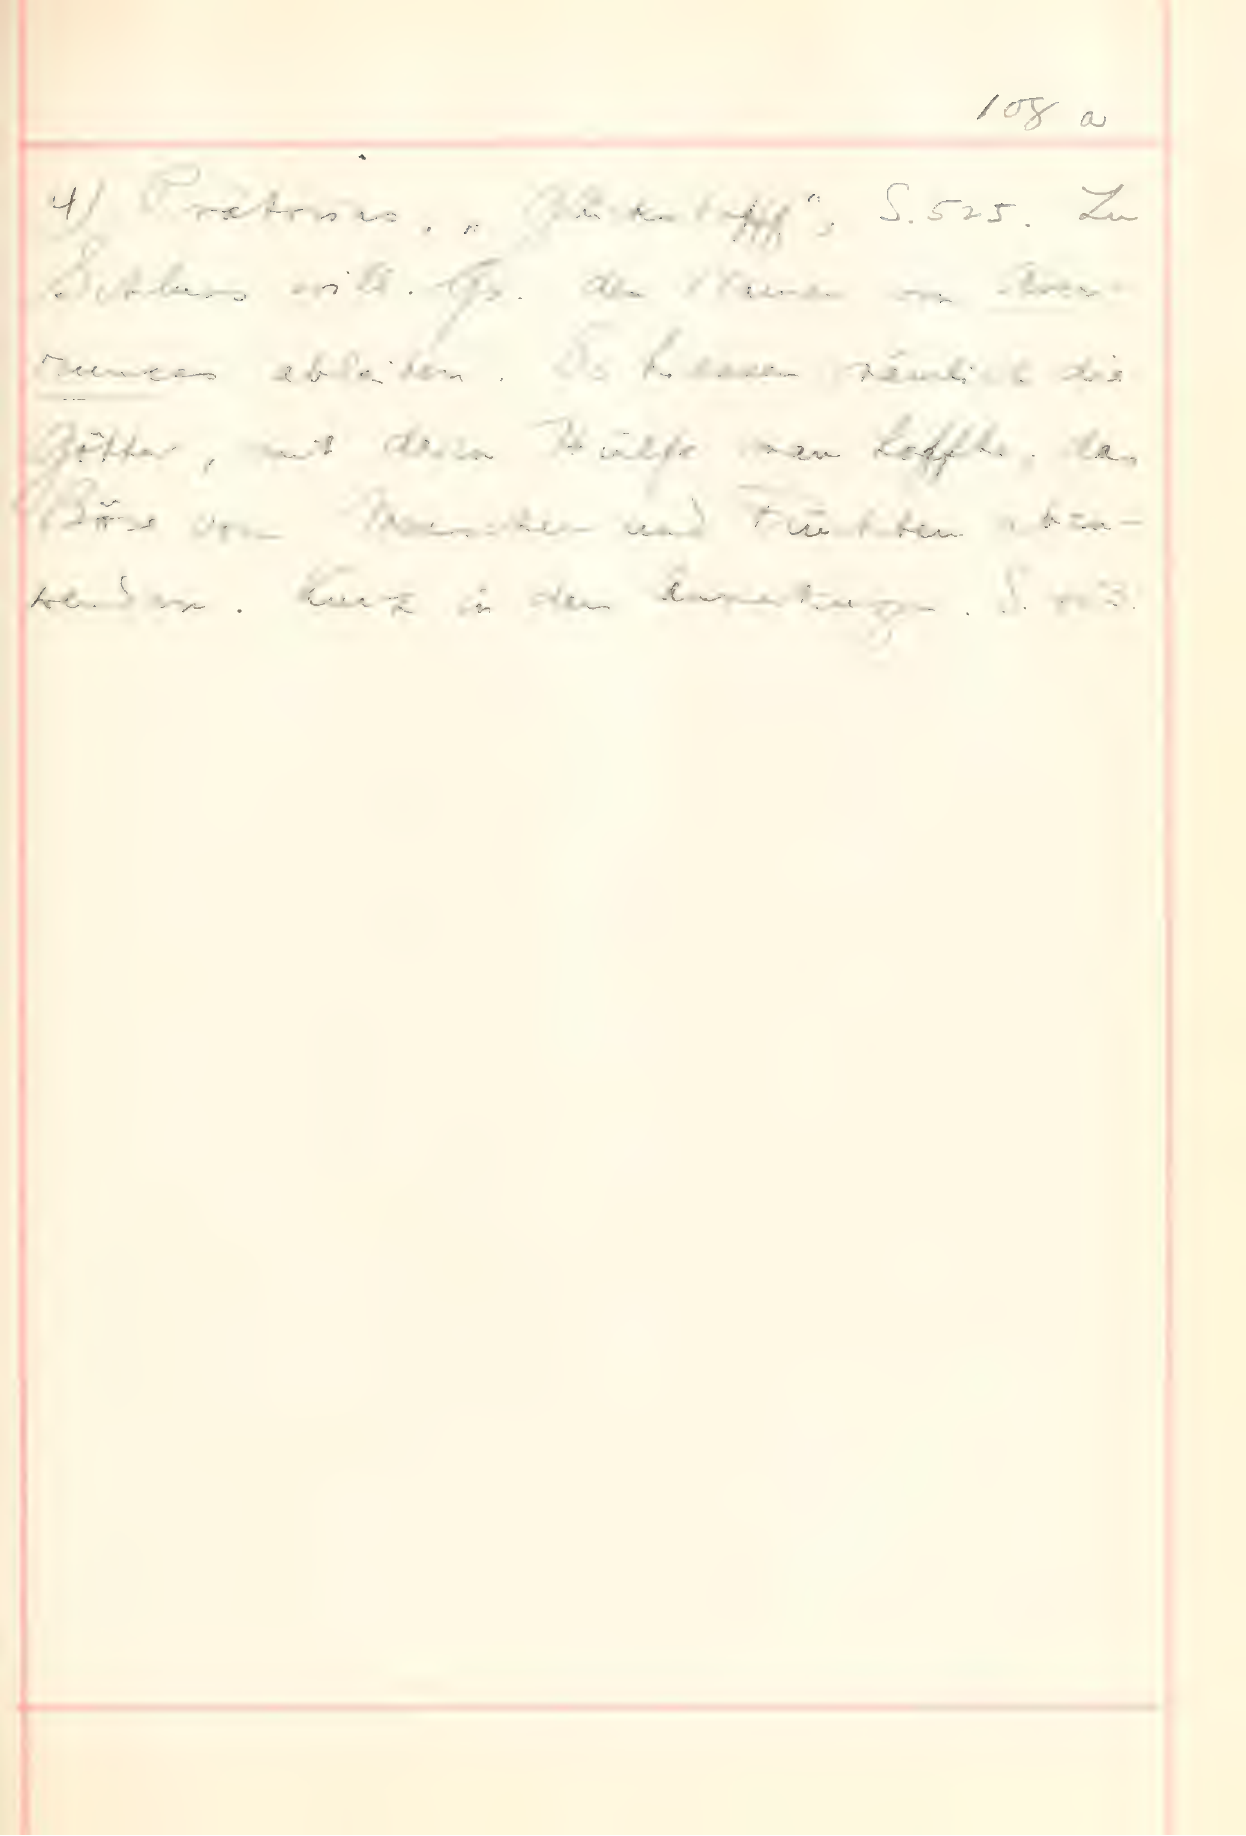 108 a
4) Prätorius, „Glückstopff“, S. 525. Zu
Schluss will Gr. den Namen von Aver-
runces ableiten. So heissen nämlich die
Götter, mit deren Hülfe man hoffte, das
Böse von Menschen und Früchten abzu-
wenden. Kurz in den Anmerkungen. S.